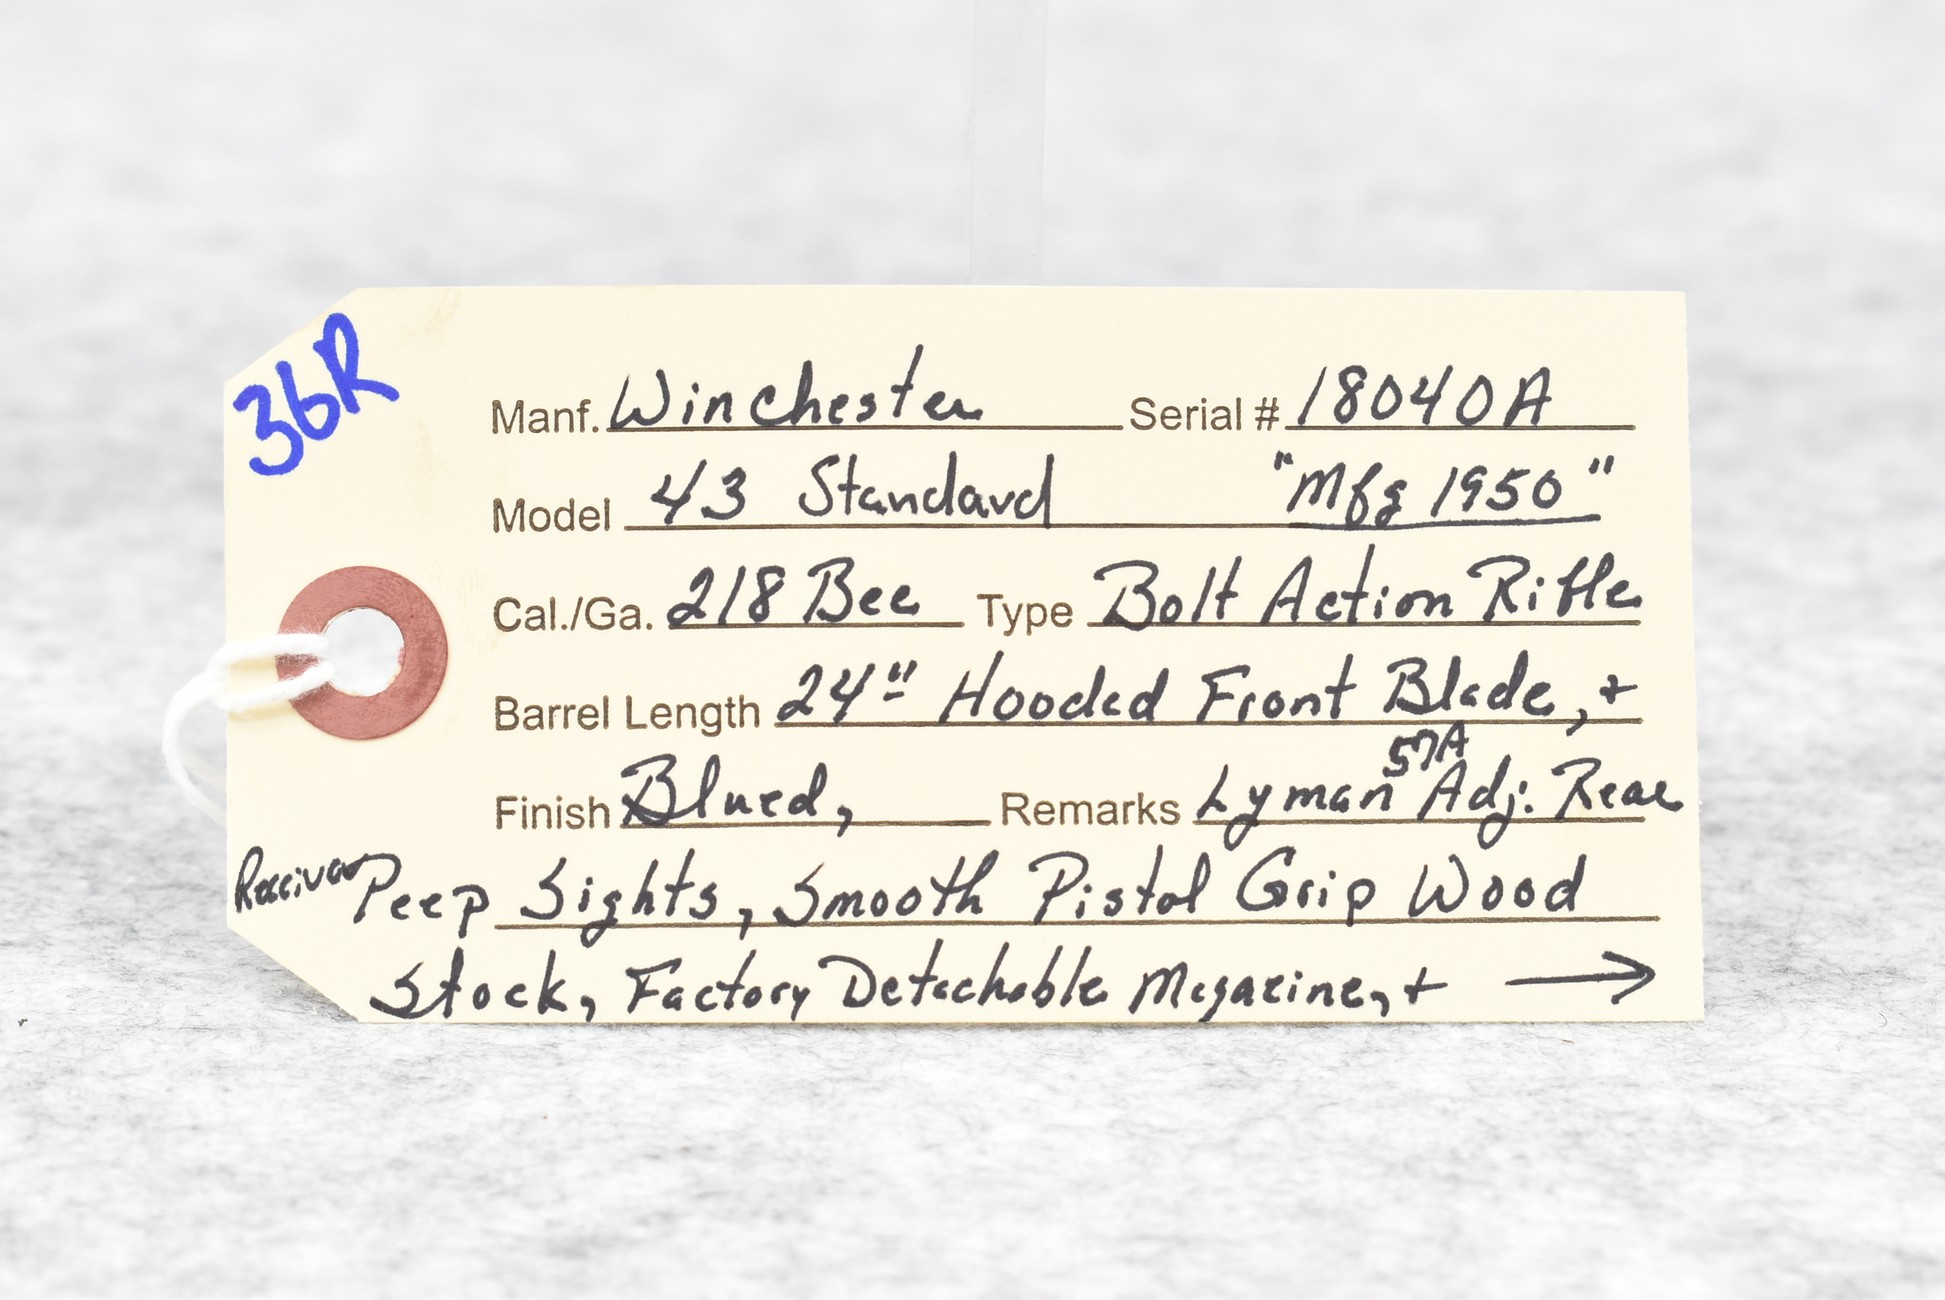 36R
Manf. Winchester Serial # 18040A
Model 43 Standard "Mfg 1950"
Cal./Ga. 218 Bee Type Bolt Action Rifle
Barrel Length 24" Hooded Front Blade, +
Finish Blued, Remarks Lyman 57A Adj. Rear
Receiver Peep Sights, Smooth Pistol Grip Wood
Stock, Factory Detachable Magazine, + →